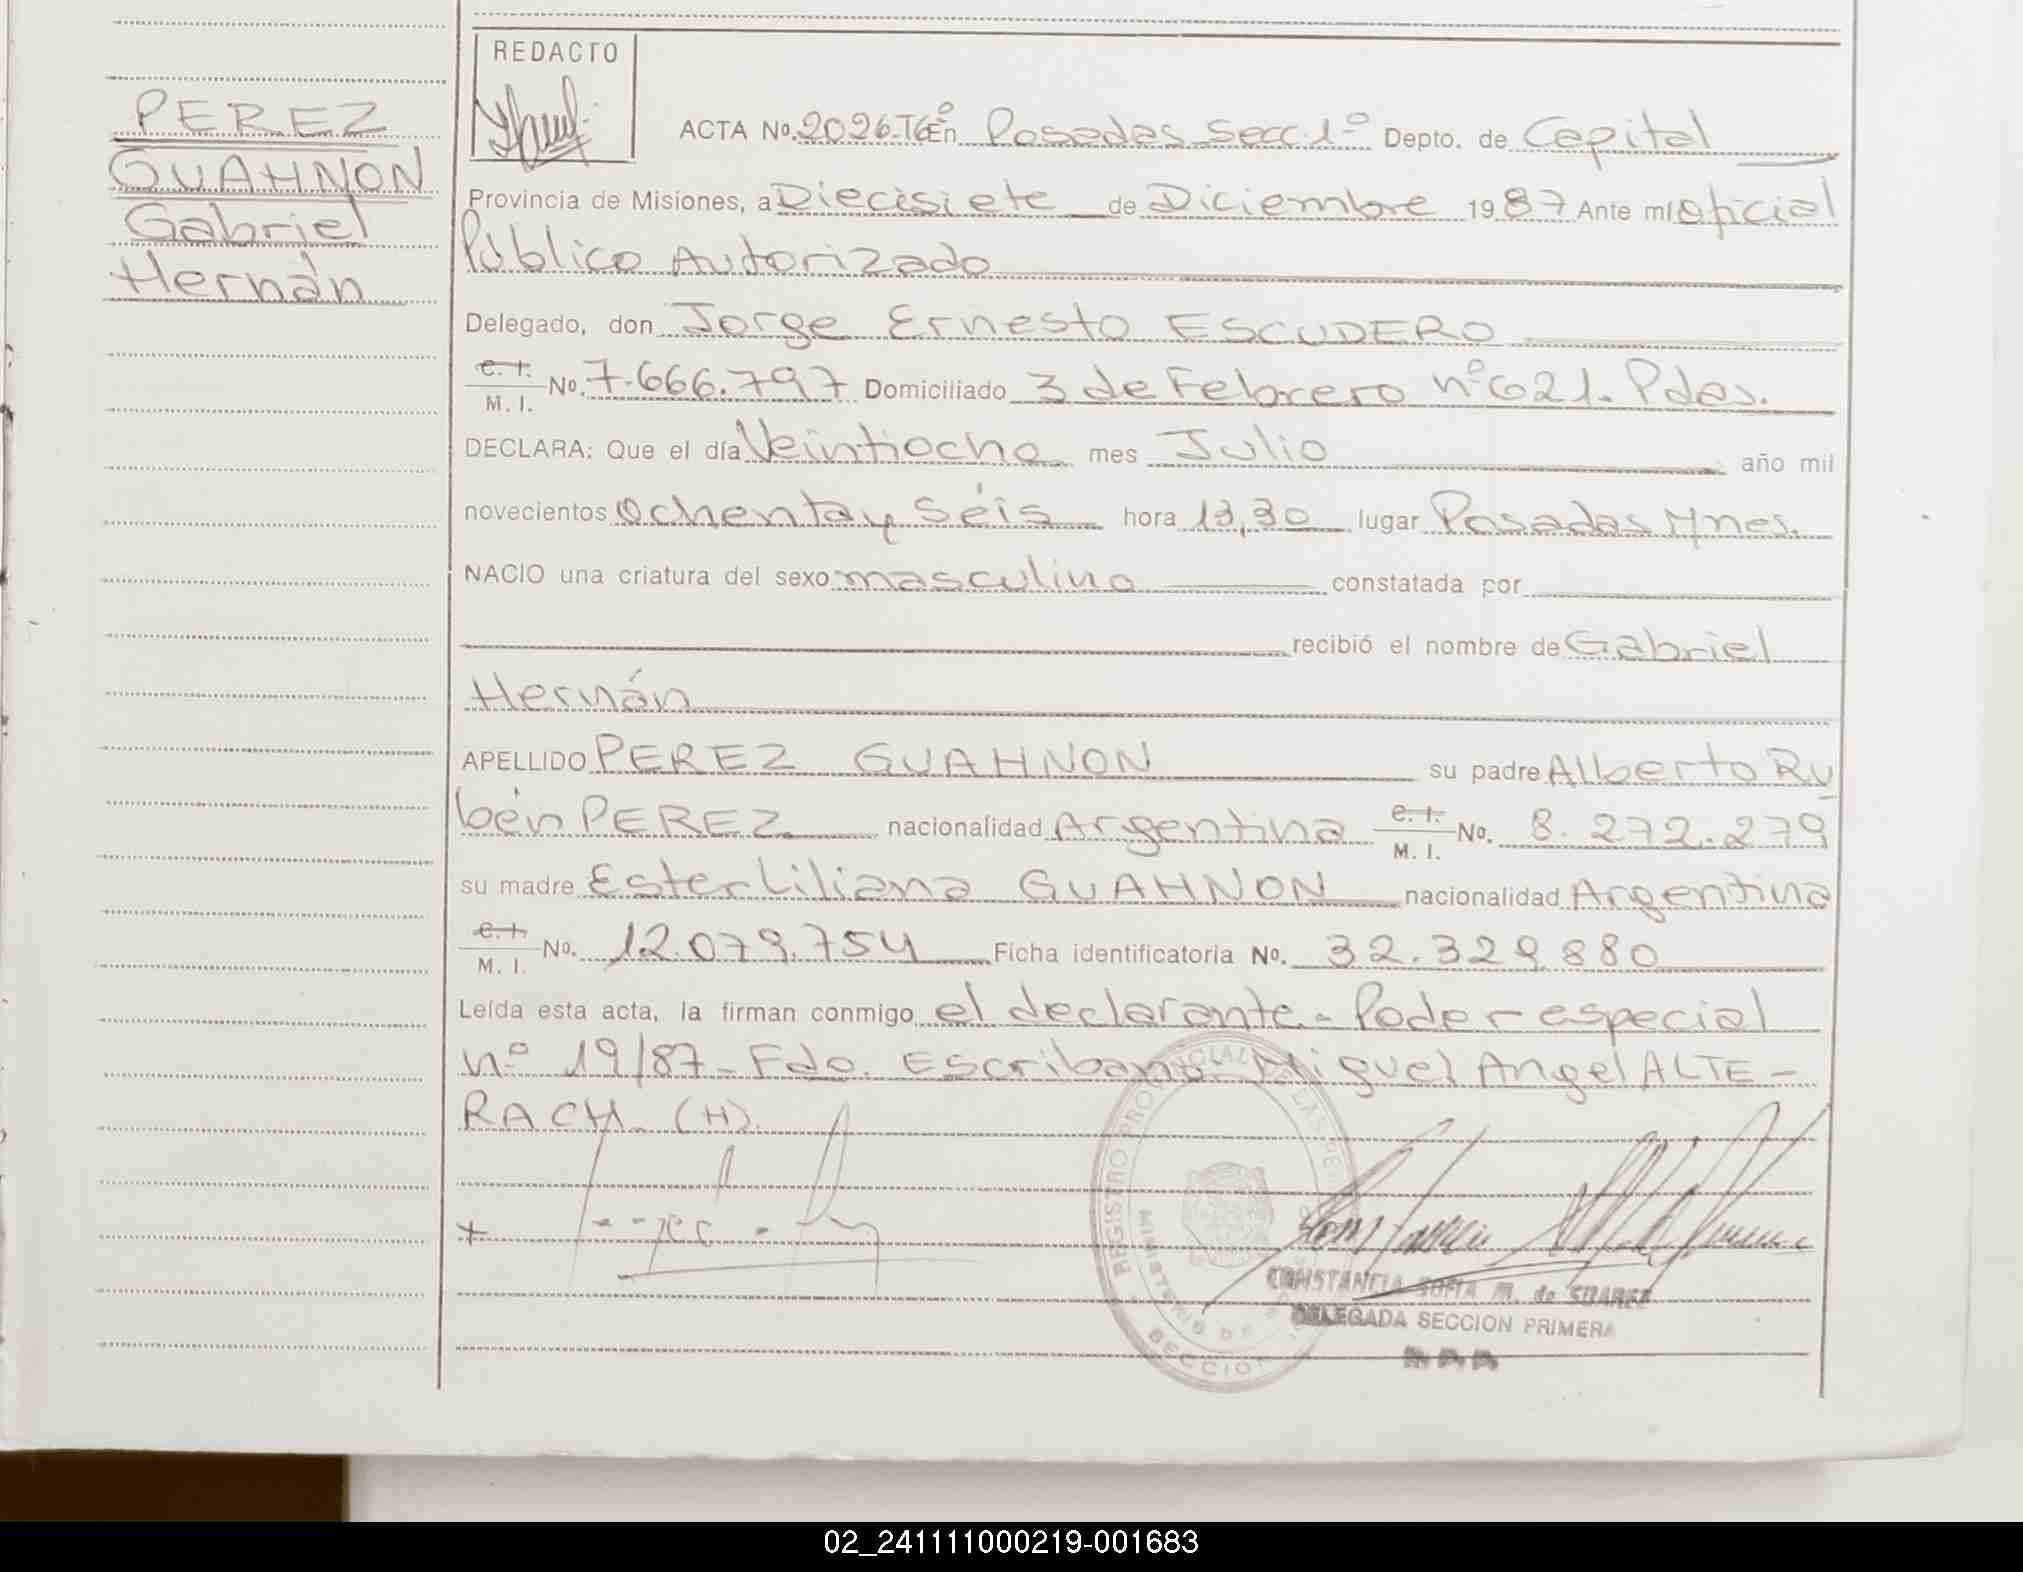 REDACTO
PEREZ
GUAHNON
Gabriel
Hernán
ACTA No. 2026-Tº6 En Posadas Secc 1º Depto. de Capital
Provincia de Misiones, a Diecisiete de Diciembre 1987 Ante mí Oficial
Público Autorizado
Delegado, don Jorge Ernesto ESCUDERO
C. I. M. I. No. 7.666.797 Domiciliado 3 de Febrero nº 621. Pdas.
DECLARA: Que el día Veintiocho mes Julio año mil
novecientos Ochenta y Séis hora 13,30 lugar Posadas Mnes.
NACIO una criatura del sexo masculino constatada por
recibió el nombre de Gabriel
Hernán
APELLIDO PEREZ GUAHNON su padre Alberto Ru
bén PEREZ nacionalidad Argentina C. I. M. I. No. 8.272.279
su madre Ester Liliana GUAHNON nacionalidad Argentina
C. I. M. I. No. 12.079.754 Ficha identificatoria No. 32.329.880
Leída esta acta, la firman conmigo el declarante - Poder especial
nº 19/87 - Fdo. Escribano Miguel Angel ALTE-
RACH (H).
REGISTRO PROVINCIAL DE LAS PE
MINISTERIO DE
SECCION
CONSTANCIA SOFIA M. de SUAREZ
DELEGADA SECCION PRIMERA
02_241111000219-001683